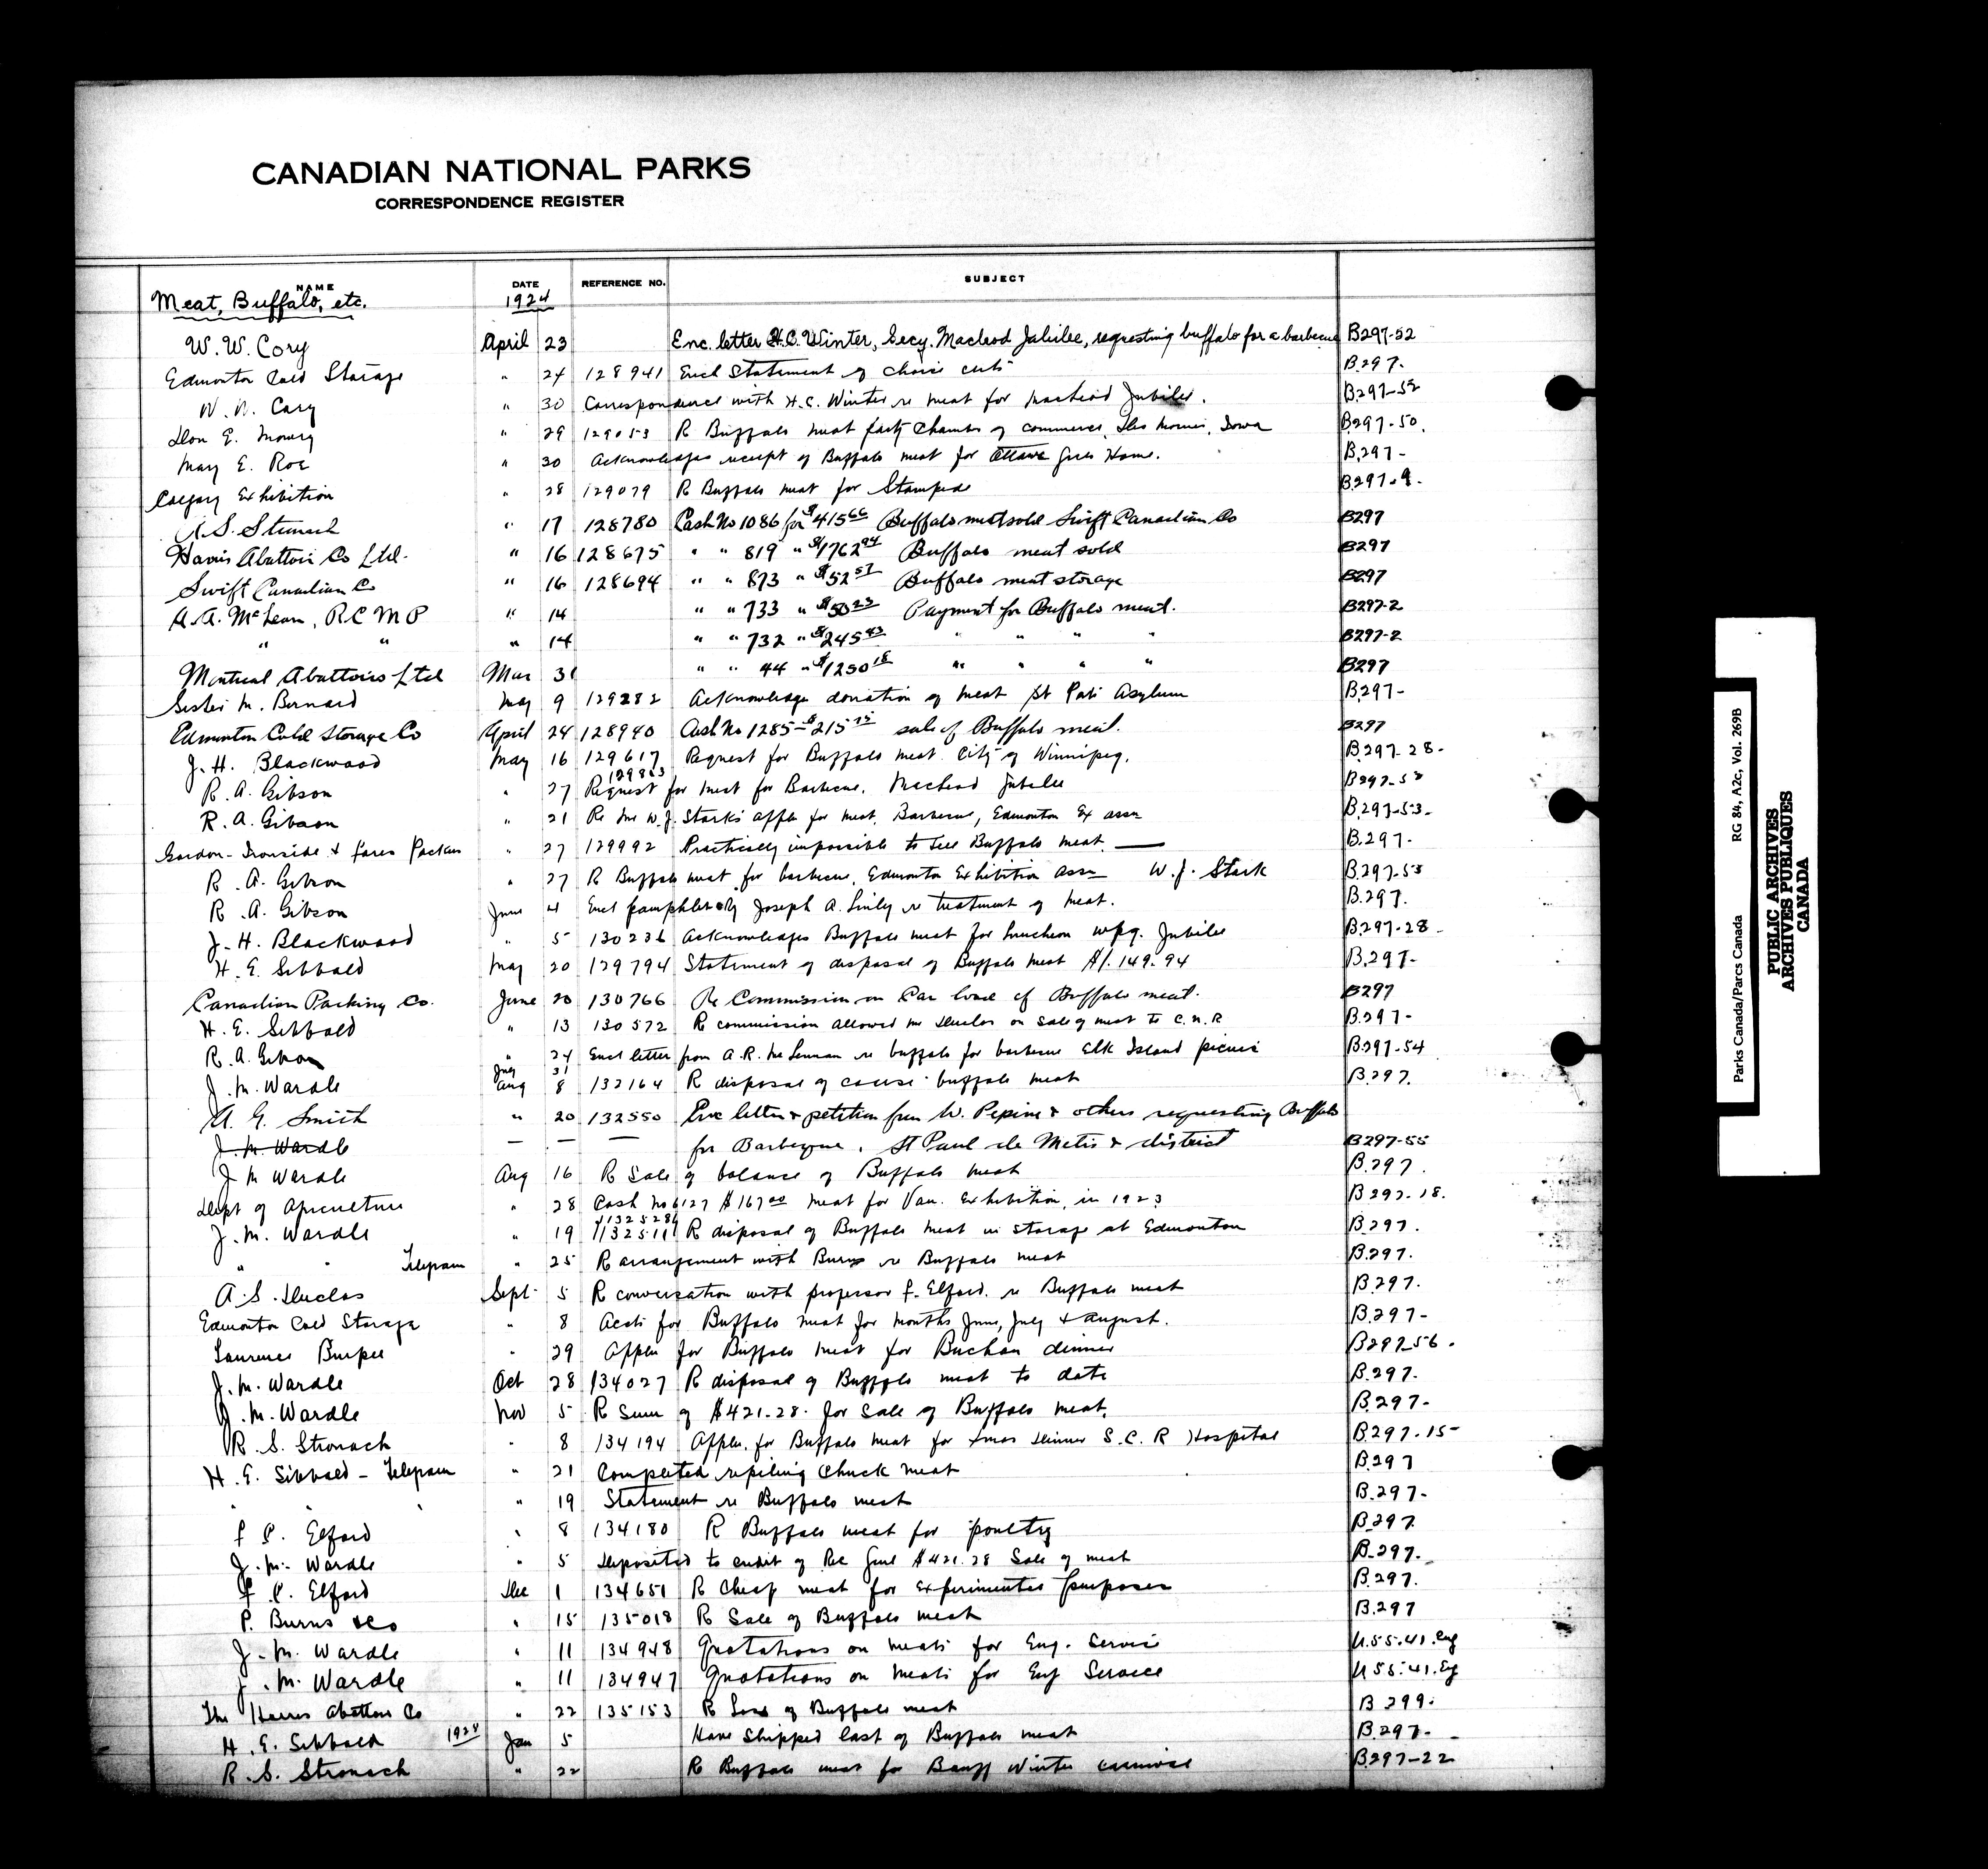 CANADIAN NATIONAL PARKS
CORRESPONDENCE REGISTER
NAME DATE REFERENCE NO. SUBJECT
Meat, Buffalo, etc. 1924
W. W. Cory April 23 Enc. letter H.C. Winter, Secy. Macleod Jubilee, requesting buffalo for a barbecue B297-52
Edmonton Cold Storage " 24 128941 Encl Statement of choice cuts B.297.
W. W. Cory " 30 Correspondence with H.C. Winter re meat for Macleod Jubilee. B297-52
Don E. Mowry " 29 129053 R Buffalo meat Chamber of commerce, Des Moines, Iowa B297-50.
May E. Roe " 30 Acknowledges receipt of Buffalo meat for Ottawa Girls Home. B.297-
Calgary Exhibition " 28 129079 R Buffalo meat for Stampede B.297.9.
" 17 128780 Cash No 1086 for $415 66 Buffalo meat sold Swift Canadian Co B297
Harris Abattoir Co Ltd. " 16 128675 " " 819 " $1762 94 Buffalo meat sold B297
Swift Canadian Co " 16 128694 " " 873 " $52 57 Buffalo meat storage B297
A. A. McLean, R C M P " 14 " " 733 " $50 23 Payment for Buffalo meat. B297-2
" " " 14 " " 732 " $245 43 " " " " B297-2
Montreal Abattoirs Ltd Mar 31 " " 44 " $1250 18 " " " " B297
Sister M. Bernard May 9 129282 Acknowledge donation of meat St Pats Asylum B297-
Edmonton Cold Storage Co April 24 128940 Cash No 1285 - $215 75 sale of Buffalo meat. B297
J. H. Blackwood May 16 129617 Request for Buffalo meat. City of Winnipeg. B.297-28-
129863
R. A. Gibson " 27 Request for meat for Barbecue. Macleod Jubilee B297-52
R. A. Gibson " 21 Re W. J. Starks appln for meat, Barbecue, Edmonton Ex assn B297-53-
Gordon-Ironside & Fares Packers " 27 129992 Practically impossible to sell Buffalo meat. B.297-
R. A. Gibson " 27 R Buffalo meat for barbecue, Edmonton Exhibition assn W. J. Stark B.297-53
R. A. Gibson June 4 Encl pamphlet by Joseph A. re treatment of meat. B.297.
J. H. Blackwood " 5 130236 Acknowledges Buffalo meat for luncheon wpg. Jubilee B.297-28-
H. E. Sibbald May 20 129794 Statement of disposal of Buffalo meat $1,149.94 B.297-
Canadian Packing Co. June 20 130766 Re Commission on Car load of Buffalo meat. B297
H. E. Sibbald " 13 130572 R commission allowed Mr Duclos on sale of meat to C.N.R B.297-
R. A. Gibson " 24 Encl letter from A.R. McLennan re buffalo for barbecue Elk Island picnic B297-54
July 31
J. M. Wardle Aug 8 132164 R disposal of coarse buffalo meat B.297.
A. G. Smith " 20 132550 Enc letter & petition from W. Pepin & others requesting Buffalo
J. M. Wardle — — — for Barbeque, St Paul de Metis & district B297-55
J M Wardle Aug 16 R Sale of balance of Buffalo meat B.297.
Dept of Agriculture " 28 Cash No 6127 $167 00 meat for Van. Exhibition, in 1923 B297-18.
132528
J. M. Wardle " 19 132511 R disposal of Buffalo meat in storage at Edmonton B.297.
" " Telegram " 25 R arrangement with Burns re Buffalo meat B.297.
A. S. Duclos Sept 5 R conversation with professor F. Elford. re Buffalo meat B.297.
Edmonton Cold Storage " 8 Accts for Buffalo meat for months June, July & August. B.297-
Laurence Burpee " 29 Appln for Buffalo meat for Buchan dinner B297-56.
J. M. Wardle Oct 28 134027 R disposal of Buffalo meat to date B.297.
J. M. Wardle Nov 5 R Sum of $421.28. for sale of Buffalo meat. B.297-
R. S. Stronach " 8 134194 Appln. for Buffalo meat for Xmas Dinner S.C.R Hospital B.297-15-
H. E. Sibbald - Telegram " 21 Completed repiling chuck meat B.297
" " " " 19 Statement re Buffalo meat B.297-
F C. Elford " 8 134180 R Buffalo meat for poultry B.297
J. M. Wardle " 5 Deposited to credit of Rec Genl $421.28 Sale of meat B.297.
F. C. Elford Dec 1 134651 R Cheap meat for experimental purposes B.297.
P. Burns & Co " 15 135018 R Sale of Buffalo meat B.297
J. M. Wardle " 11 134948 Quotations on meats for Eng. Service U.55.41.Eng
J. M. Wardle " 11 134947 Quotations on meats for Eng Service U55.41.Eg
The Harris Abattoir Co " 22 135153 R Loss of Buffalo meat B 299.
H. E. Sibbald Jan 5 Have shipped last of Buffalo meat B.297-
R. S. Stronach " 22 R Buffalo meat for Banff Winter carnival B297-22
Parks Canada/Parcs Canada RG 84, A2c, Vol. 269B
PUBLIC ARCHIVES
ARCHIVES PUBLIQUES
CANADA